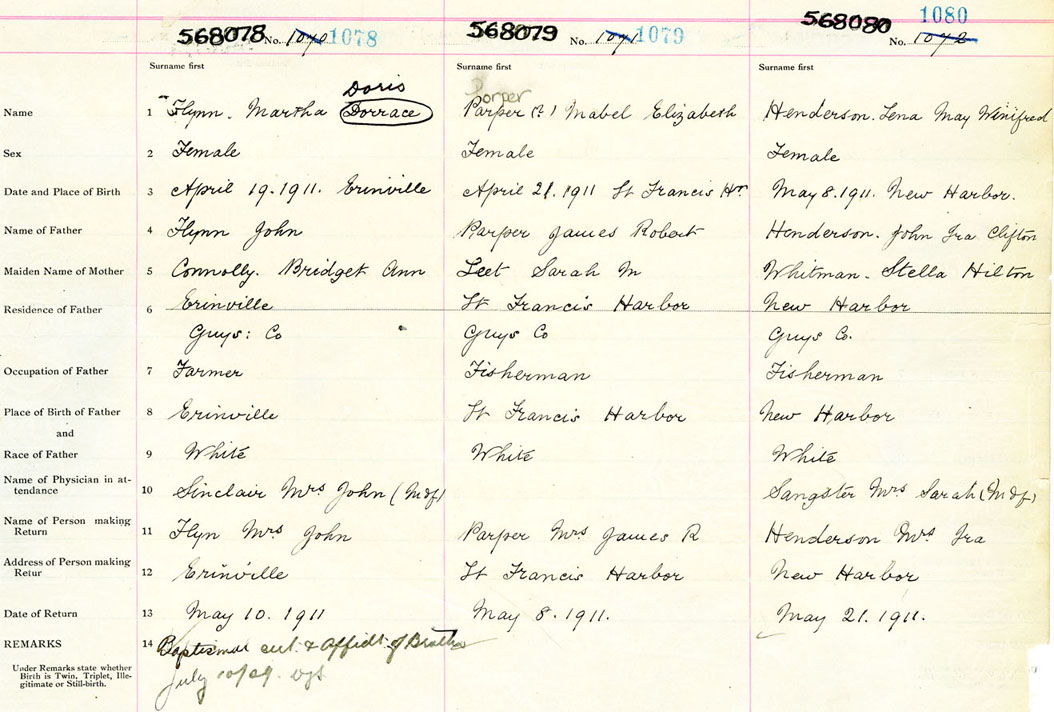 568078 568079 568080 1080
No. 1070 1078 No. 1071 1079 No. 1072
Surname first Surname first Surname first
Doris Porper
Name 1 Flynn. Martha Dorrace Parper (?) Mabel Elizabeth Henderson. Lena May Winifred
Sex 2 Female Female Female
Date and Place of Birth 3 April 19. 1911. Erinville April 21. 1911 St Francis Hr May 8. 1911. New Harbor.
Name of Father 4 Flynn John Parper James Robert Henderson. John Ira Clifton
Maiden Name of Mother 5 Connolly. Bridget Ann Leet Sarah M Whitman. Stella Hilton
Residence of Father 6 Erinville St Francis Harbor New Harbor
Guys: Co Guys Co Guys Co.
Occupation of Father 7 Farmer Fisherman Fisherman
Place of Birth of Father 8 Erinville St Francis Harbor New Harbor
and
Race of Father 9 White White White
Name of Physician in at-
tendance 10 Sinclair Mrs John (Mdf) Sangster Mrs Sarah (Mdf)
Name of Person making
Return 11 Flyn Mrs John Parper Mrs James R Henderson Mrs Ira
Address of Person making
Retur 12 Erinville St Francis Harbor New Harbor
Date of Return 13 May 10. 1911 May 8. 1911. May 21. 1911.
REMARKS 14 Baptismal cert. & Affidt. of Brother
Under Remarks state whether
Birth is Twin, Triplet, Ille-
gitimate or Still-birth.
July 10/